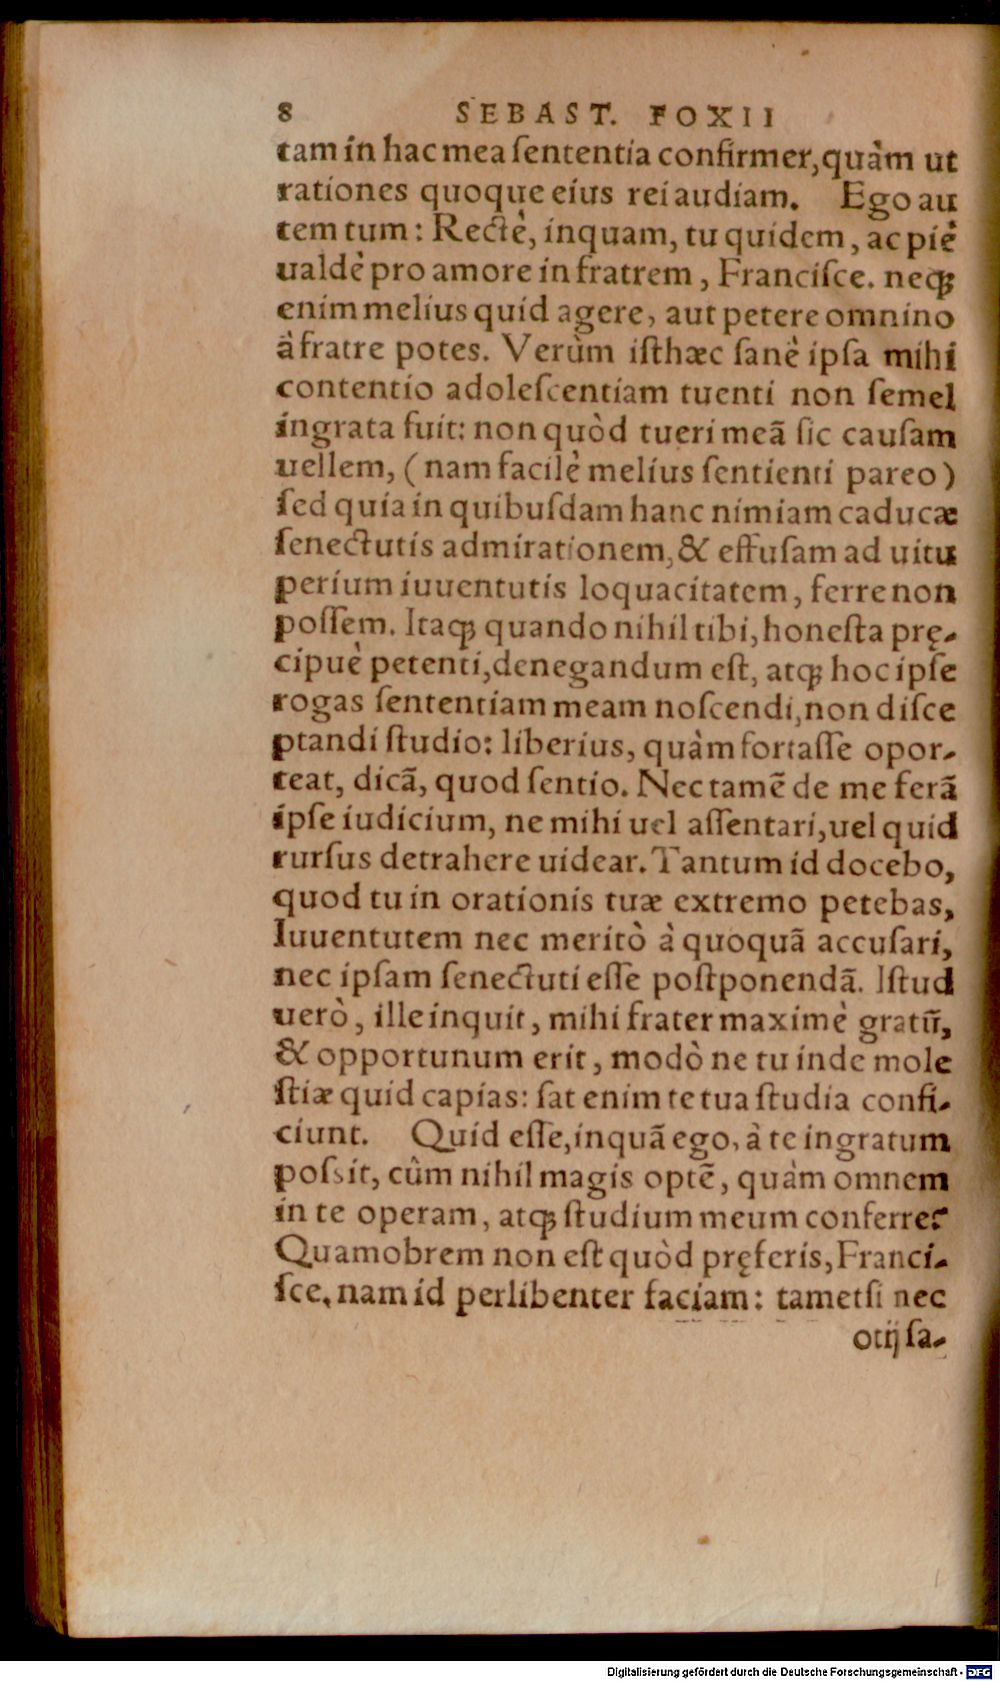 8 SEBAST. FOXII
tam in hac mea ſententia confirmer, quàm ut
rationes quoque eius rei audiam. Ego au
tem tum: Rectè, inquam, tu quidem, ac piè
ualdè pro amore in fratrem, Franciſce. neqꝫ
enim melius quid agere, aut petere omnino
à fratre potes. Verùm iſthæc ſanè ipſa mihi
contentio adoleſcentiam tuenti non ſemel
ingrata fuit: non quòd tueri meã ſic cauſam
uellem, (nam facilè melius ſentienti pareo)
ſed quia in quibuſdam hanc nimiam caducæ
ſenectutis admirationem, & effuſam ad uitu
perium iuuentutis loquacitatem, ferre non
poſſem. Itaqꝫ quando nihil tibi, honeſta prę-
cipuè petenti, denegandum eſt, atqꝫ hoc ipſe
rogas ſententiam meam noſcendi, non diſce
ptandi ſtudio: liberius, quàm fortaſſe opor-
teat, dicã, quod ſentio. Nec tamẽ de me ferã
ipſe iudicium, ne mihi uel aſſentari, uel quid
rurſus detrahere uidear. Tantum id docebo,
quod tu in orationis tuæ extremo petebas,
Iuuentutem nec meritò à quoquã accuſari,
nec ipſam ſenectuti eſſe poſtponendã. Iſtud
uerò, ille inquit, mihi frater maximè gratũ,
& opportunum erit, modò ne tu inde mole
ſtiæ quid capias: ſat enim te tua ſtudia confi-
ciunt. Quid eſſe, inquã ego, à te ingratum
poſsit, cûm nihil magis optẽ, quàm omnem
in te operam, atqꝫ ſtudium meum conferre?
Quamobrem non eſt quòd pręferis, Franci-
ſce, nam id perlibenter faciam: tametſi nec
otij ſa-
Digitalisierung gefördert durch die Deutsche Forschungsgemeinschaft - DFG